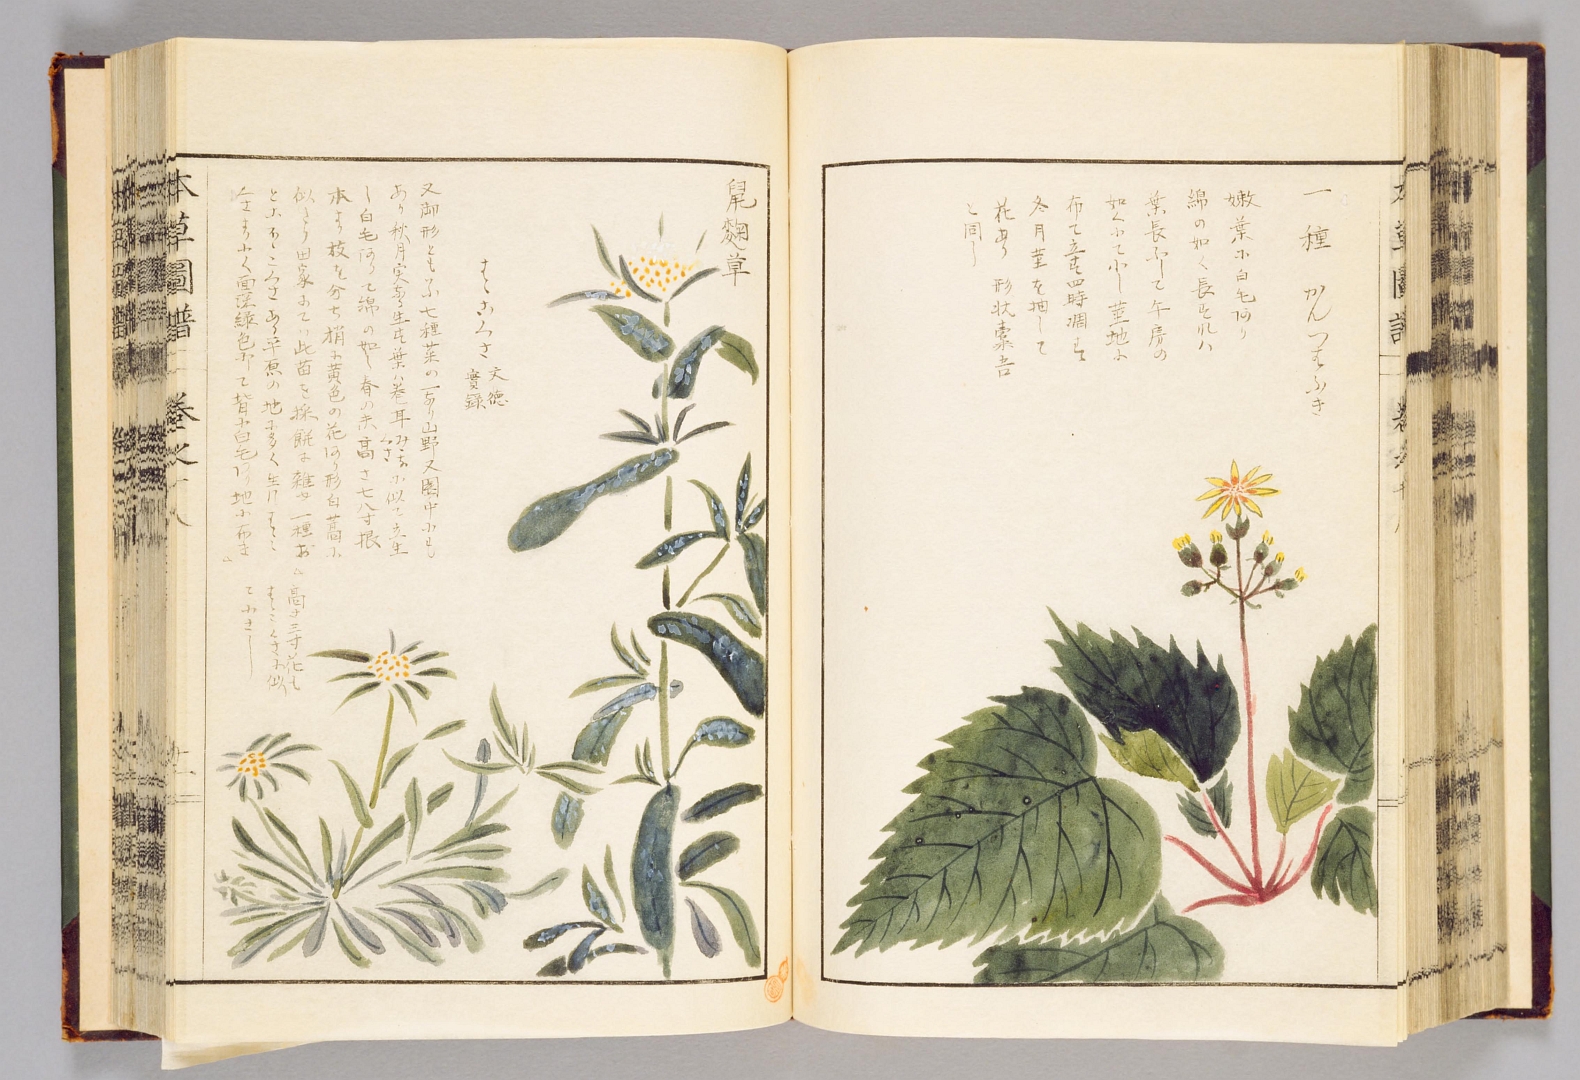 一種 かんつわふき
嫩葉に白毛ありて
綿の如く長すれハ
葉長ふして牛房の
如くにて小し茎地に
布て立す四時凋まず
冬月茎を抽して
花あり 形状橐吾
と同し
鼠麴草
はゝこくさ 文徳
實録
又御形ともふ七種菜の一あり山野又園中にも
あり秋月実より生す葉ハ巻耳みゝなくさに似て立生
し白毛ありて綿の如し春の末高さ七八寸根
本より枝を分ち梢に黄色の花あり形白蒿に
似たり田家にてハ此苗を採餅に雑ゆ一種
平原の地に多く生す
面深緑色にして背に白毛あり地に布き
高サ三寸花も
はゝこくさに似
て小さし
本草圖譜 巻之十八